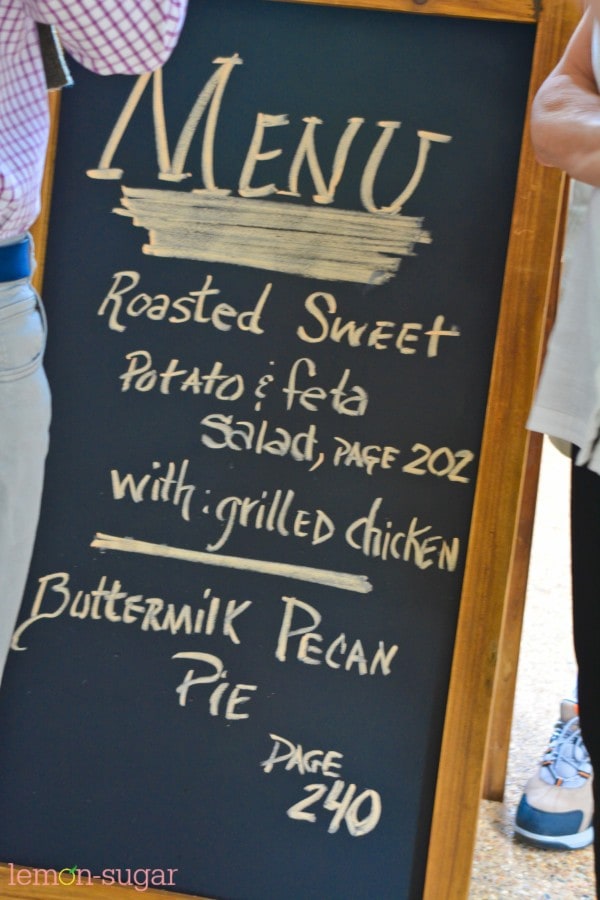 MENU
Roasted Sweet
Potato & feta
Salad, PAGE 202
with: grilled chicken
Buttermilk Pecan
Pie
PAGE
240
lemon-sugar